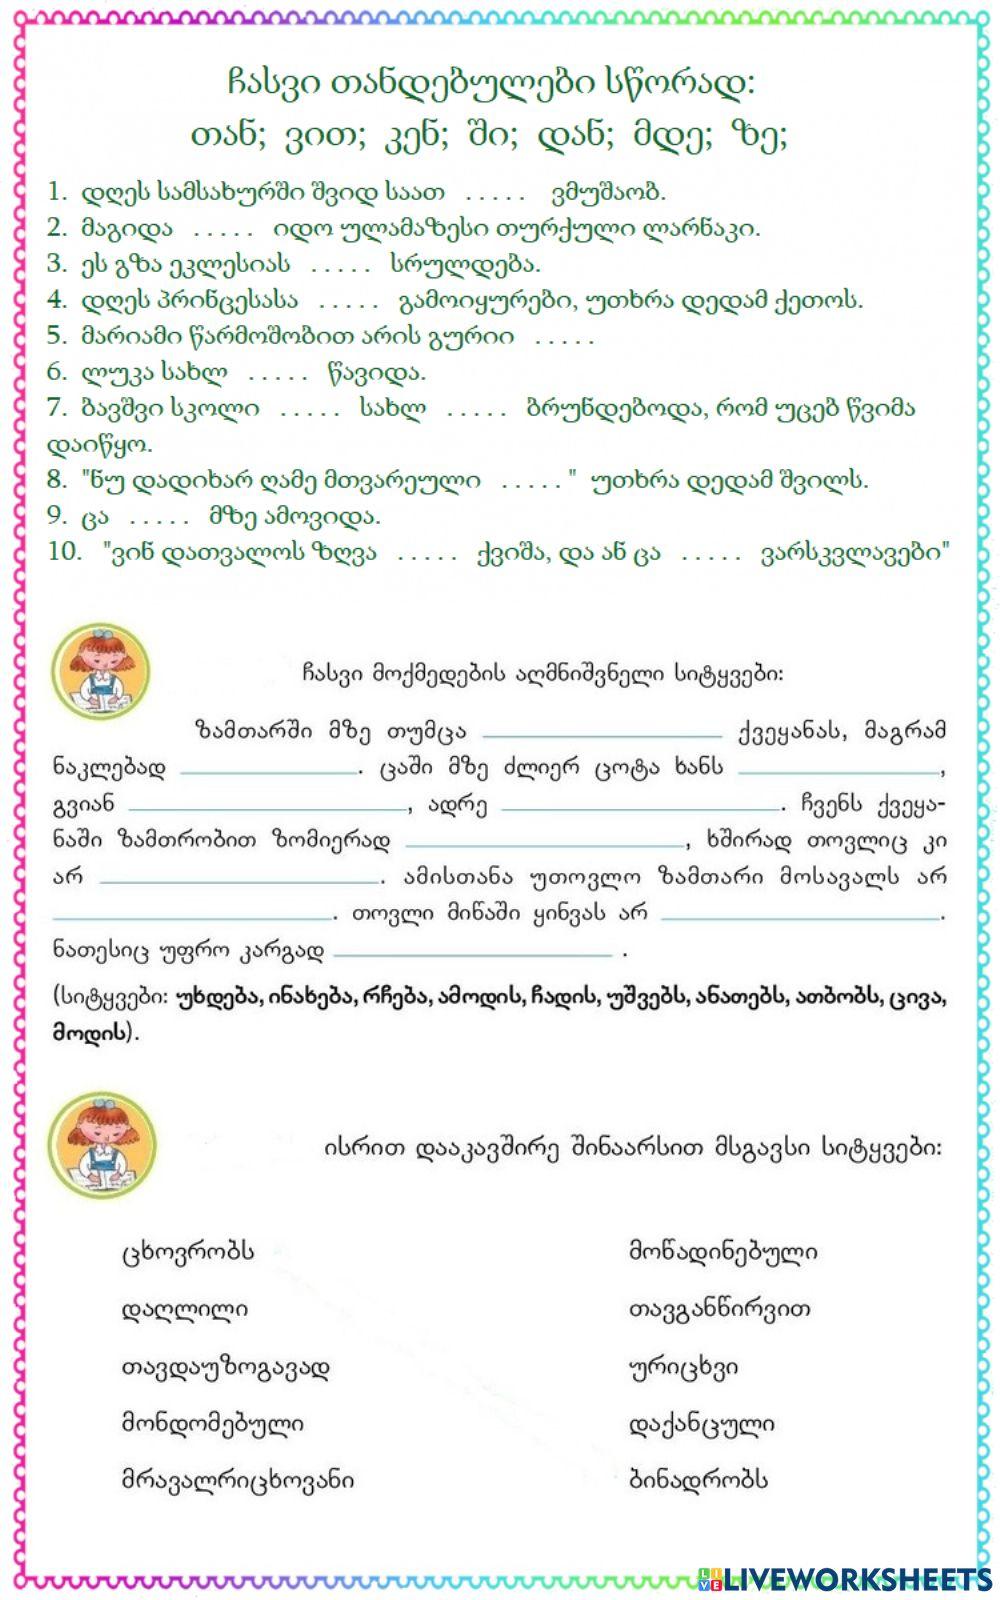 ჩასვი თანდებულები სწორად:
თან; ვით; კენ; ში; დან; მდე; ზე;
1. დღეს სამსახურში შვიდ საათ ..... ვმუშაობ.
2. მაგიდა ..... იდო ულამაზესი თურქული ლარნაკი.
3. ეს გზა ეკლესიას ..... სრულდება.
4. დღეს პრინცესასა ..... გამოიყურები, უთხრა დედამ ქეთოს.
5. მარიამი წარმოშობით არის გურიი .....
6. ლუკა სახლ ..... წავიდა.
7. ბავშვი სკოლი ..... სახლ ..... ბრუნდებოდა, რომ უცებ წვიმა
დაიწყო.
8. "ნუ დადიხარ ღამე მთვარეული ....." უთხრა დედამ შვილს.
9. ცა ..... მზე ამოვიდა.
10. "ვინ დათვალოს ზღვა ..... ქვიშა, და ან ცა ..... ვარსკვლავები"
ჩასვი მოქმედების აღმნიშვნელი სიტყვები:
ზამთარში მზე თუმცა ________ ქვეყანას, მაგრამ
ნაკლებად ________. ცაში მზე ძლიერ ცოტა ხანს ________,
გვიან ________, ადრე ________. ჩვენს ქვეყა-
ნაში ზამთრობით ზომიერად ________, ხშირად თოვლიც კი
არ ________. ამისთანა უთოვლო ზამთარი მოსავალს არ
________. თოვლი მიწაში ყინვას არ ________.
ნათესიც უფრო კარგად ________ .
(სიტყვები: უხდება, ინახება, რჩება, ამოდის, ჩადის, უშვებს, ანათებს, ათბობს, ცივა,
მოდის).
ისრით დააკავშირე შინაარსით მსგავსი სიტყვები:
ცხოვრობს მოწადინებული
დაღლილი თავგანწირვით
თავდაუზოგავად ურიცხვი
მონდომებული დაქანცული
მრავალრიცხოვანი ბინადრობს
LIVE LIVEWORKSHEETS